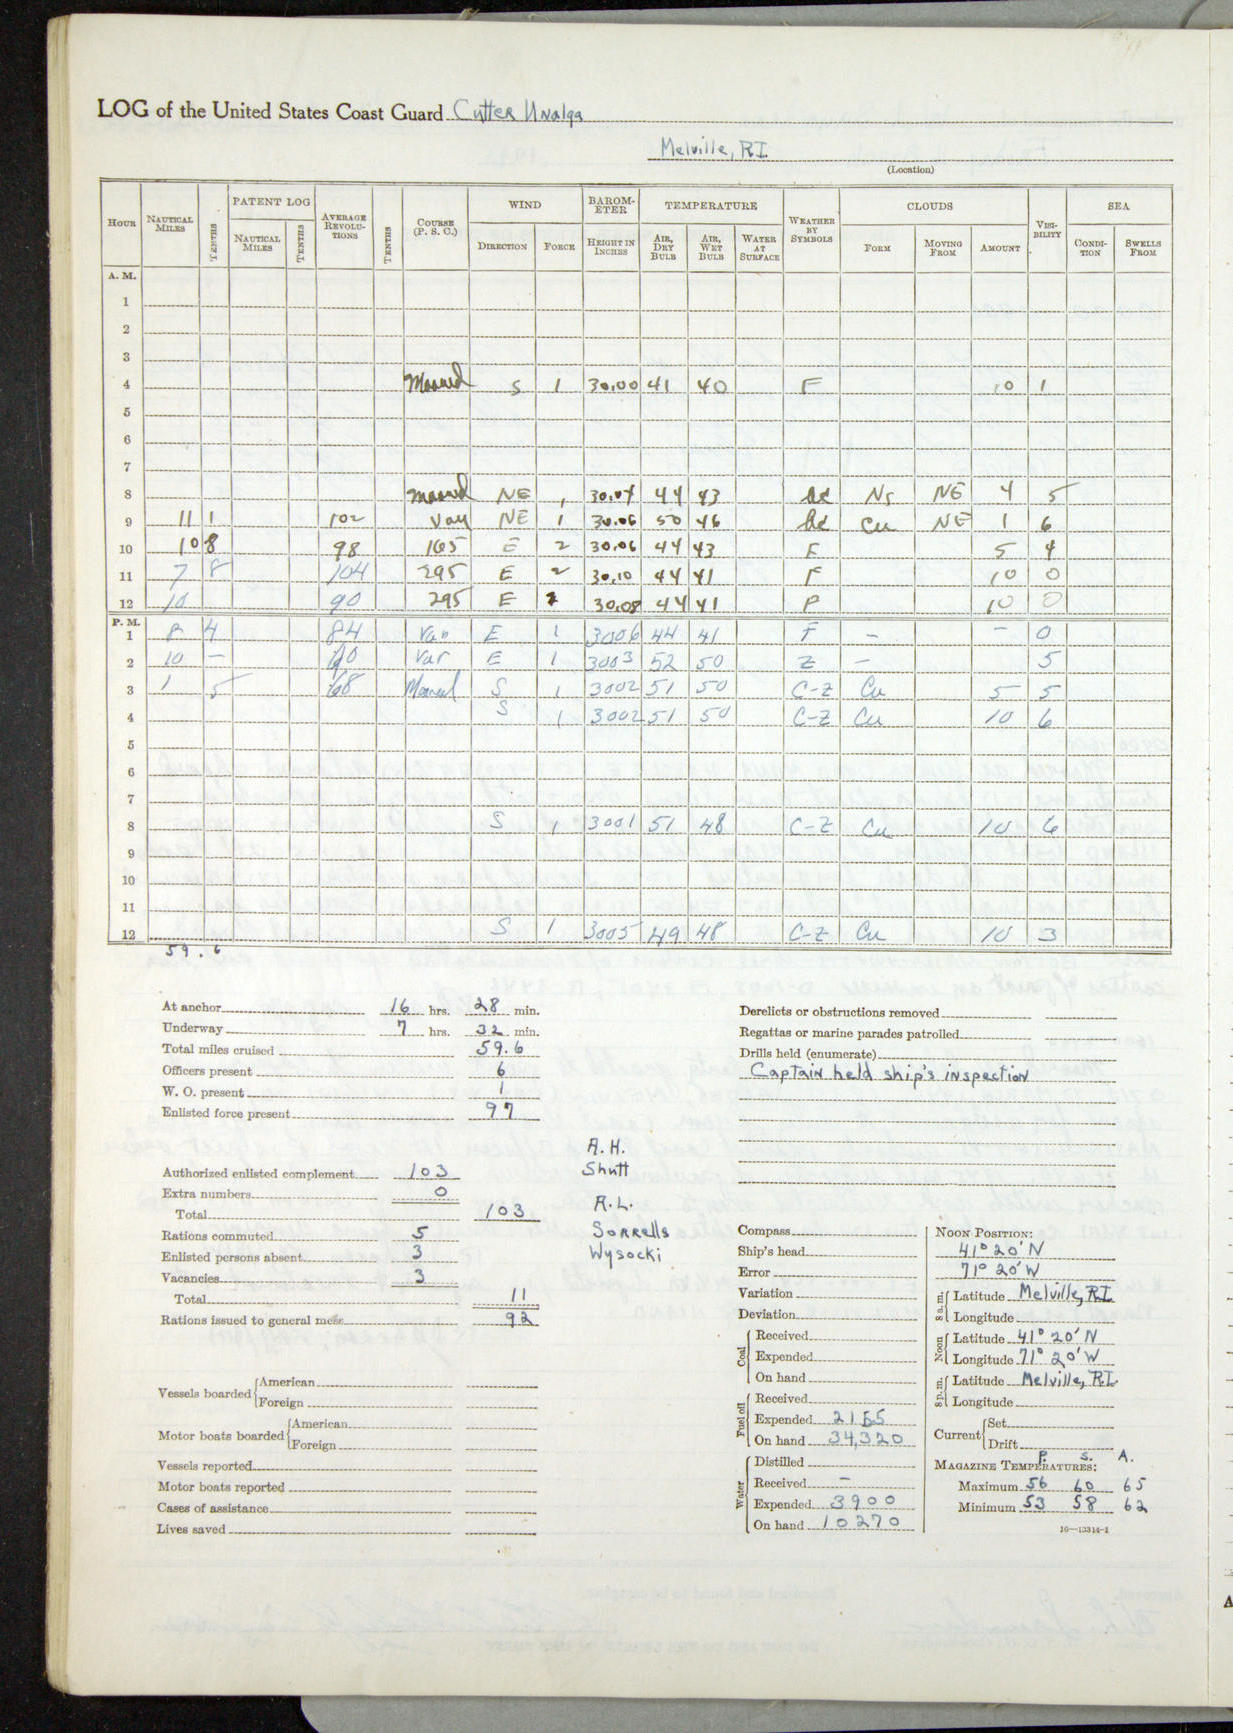 LOG of the United States Coast Guard Cutter Unalga
Melville, RI
(Location)
HOUR NAUTICAL MILES TENTHS PATENT LOG NAUTICAL MILES TENTHS AVERAGE REVOLUTIONS TENTHS COURSE (P. S. C.) WIND DIRECTION FORCE BAROMETER HEIGHT IN INCHES TEMPERATURE AIR, DRY BULB AIR, WET BULB WATER AT SURFACE WEATHER BY SYMBOLS CLOUDS FORM MOVING FROM AMOUNT VISIBILITY SEA CONDITION SWELLS FROM
A. M.
1
2
3
4 Moored S 1 30.00 41 40 F 10 1
5
6
7
8 Moored NE 1 30.04 44 43 Ns NE 4 5
9 11 1 102 Var NE 1 30.06 50 46 Cu NE 1 6
10 10 8 98 165 E 2 30.06 44 43 F 5 4
11 7 8 104 295 E 2 30.10 44 41 F 10 0
12 10 90 295 E 30.08 44 41 F 10 0
P. M.
1 8 4 84 Var E 1 3006 44 41 F – – 0
2 10 – Var E 1 3003 52 50 Z – 5
3 1 5 68 Moored S 1 3002 51 50 C-Z Cu 5 5
4 S 1 3002 51 50 C-Z Cu 10 6
5
6
7
8 S 1 3001 51 48 C-Z Cu 10 6
9
10
11
12 S 1 3005 49 48 C-Z Cu 10 3
59.6
At anchor 16 hrs. 28 min.
Underway 7 hrs. 32 min.
Total miles cruised 59.6
Officers present 6
W. O. present 1
Enlisted force present 97
A. H.
Shutt
Authorized enlisted complement 103
Extra numbers 0
Total 103
A. L.
Rations commuted 5 Sorrells
Enlisted persons absent 3 Wysocki
Vacancies 3
Total 11
Rations issued to general mess 92
Vessels boarded American
Foreign
Motor boats boarded American
Foreign
Vessels reported
Motor boats reported
Cases of assistance
Lives saved
Derelicts or obstructions removed
Regattas or marine parades patrolled
Drills held (enumerate)
Captain held ship's inspection
Compass
Ship's head
Error
Variation
Deviation
Coal Received
Expended
On hand
Fuel oil Received
Expended 2155
On hand 34,320
Water Distilled
Received –
Expended 3900
On hand 10270
NOON POSITION:
41° 20' N
71° 20' W
8 a.m. Latitude Melville, RI
Longitude
Noon Latitude 41° 20' N
Longitude 71° 20' W
8 p.m. Latitude Melville, RI
Longitude
Current Set
Drift
P. S. A.
MAGAZINE TEMPERATURES:
Maximum 56 60 65
Minimum 53 58 62
16—13314-1